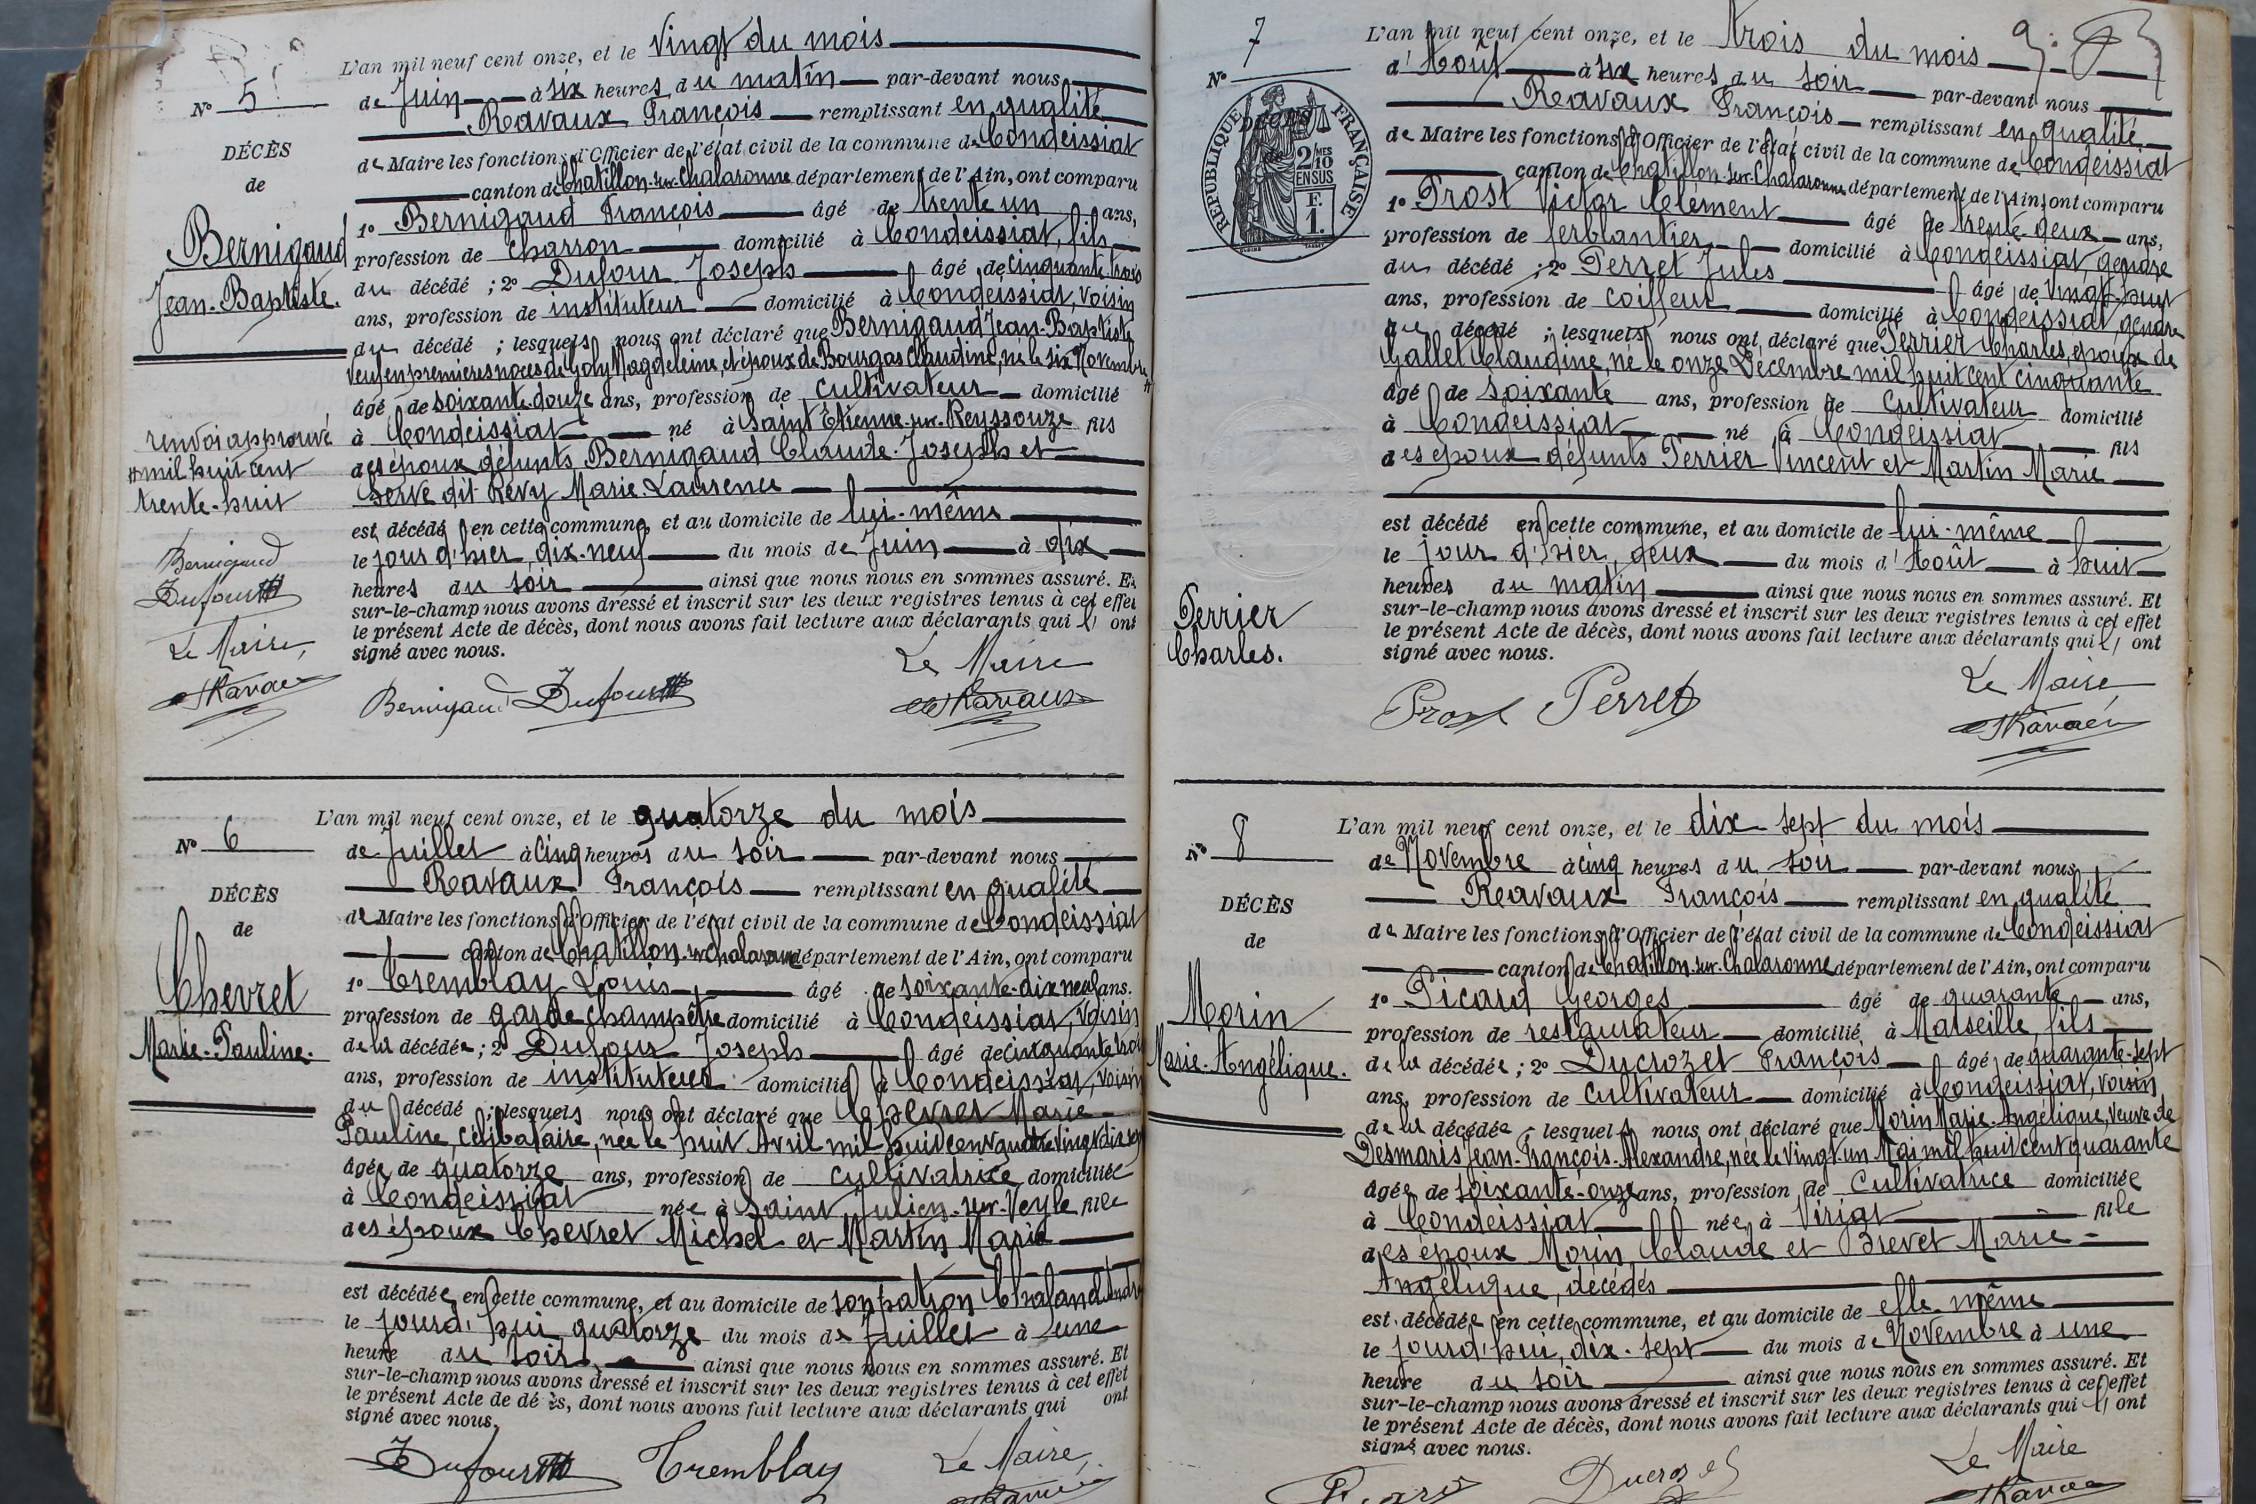 L'an mil neuf cent onze, et le vingt du mois
N° 5
de Juin à six heures du matin par-devant nous
Ravaux François remplissant en qualité
DÉCÈS
de
de Maire les fonctions d'Officier de l'état civil de la commune de Condeissiat
canton de Chatillon-sur-Chalaronne département de l'Ain, ont comparu
Bernigaud
Jean-Baptiste.
1° Bernigaud François âgé de trente un ans,
profession de charron domicilié à Condeissiat, fils
du décédé ; 2° Dufour Joseph âgé de cinquante trois
ans, profession de instituteur domicilié à Condeissiat, voisin
du décédé ; lesquels nous ont déclaré que Bernigaud Jean-Baptiste
veuf en premières noces de Goly Magdeleine, et époux de Bourgas Claudine, né le six Novembre
âgé de soixante-douze ans, profession de cultivateur domicilié
à Condeissiat né à Saint Etienne-sur-Reyssouze fils
des époux défunts Bernigaud Claude-Joseph et
Serve dit Revy Marie Laurence
renvoi approuvé
mil huit cent
trente-huit
est décédé en cette commune, et au domicile de lui-même
le jour d'hier, dix-neuf du mois de Juin à dix
heures du soir ainsi que nous nous en sommes assuré. Et
sur-le-champ nous avons dressé et inscrit sur les deux registres tenus à cet effet
le présent Acte de décès, dont nous avons fait lecture aux déclarants qui l' ont
signé avec nous.
Bernigaud
Dufour
Le Maire,
Ravaux
Bernigaud Dufour
Le Maire
Ravaux
L'an mil neuf cent onze, et le quatorze du mois
N° 6
de Juillet à cinq heures du soir par-devant nous
Ravaux François remplissant en qualité
DÉCÈS
de
de Maire les fonctions d'Officier de l'état civil de la commune de Condeissiat
canton de Chatillon-sur-Chalaronne département de l'Ain, ont comparu
Chevret
Marie-Pauline.
1° Tremblay Louis, âgé de soixante-dix neuf ans.
profession de garde champêtre domicilié à Condeissiat, voisin
de la décédée ; 2° Dufour Joseph âgé de cinquante trois
ans, profession de instituteur domicilié à Condeissiat, voisin
du décédé ; lesquels nous ont déclaré que Chevret Marie-
Pauline, célibataire, née le huit Avril mil huit cent quatre vingt dix sept
âgée de quatorze ans, profession de cultivatrice domiciliée
à Condeissiat née à Saint Julien-sur-Veyle fille
des époux Chevret Michel et Martin Marie
est décédée en cette commune, et au domicile de son patron Chaland
le jourd'hui quatorze du mois de Juillet à une
heure du soir, ainsi que nous nous en sommes assuré. Et
sur-le-champ nous avons dressé et inscrit sur les deux registres tenus à cet effet
le présent Acte de décès, dont nous avons fait lecture aux déclarants qui ont
signé avec nous.
Dufour Tremblay
Le Maire,
Ravaux
7
N°
L'an mil neuf cent onze, et le trois du mois
d'Août à six heures du soir par-devant nous
Ravaux François remplissant en qualité
RÉPUBLIQUE FRANÇAISE
DÉCÈS
de
2 MES
10
EN SUS
F.
1.
de Maire les fonctions d'Officier de l'état civil de la commune de Condeissiat
canton de Chatillon-sur-Chalaronne département de l'Ain, ont comparu
1° Prost Victor Clément âgé de trente-deux ans,
profession de ferblantier, domicilié à Condeissiat, gendre
du décédé ; 2° Perret Jules âgé de vingt-huit
ans, profession de coiffeur domicilié à Condeissiat, gendre
du décédé ; lesquels nous ont déclaré que Perrier Charles, époux de
Gallet Claudine, né le onze Décembre mil huit cent cinquante
âgé de soixante ans, profession de cultivateur domicilié
à Condeissiat né à Condeissiat fils
des époux défunts Perrier Vincent et Martin Marie
est décédé en cette commune, et au domicile de lui-même
le jour d'hier, deux du mois d'Août à huit
heures du matin ainsi que nous nous en sommes assuré. Et
sur-le-champ nous avons dressé et inscrit sur les deux registres tenus à cet effet
le présent Acte de décès, dont nous avons fait lecture aux déclarants qui l' ont
signé avec nous.
Perrier
Charles.
Prost Perret
Le Maire
Ravaux
L'an mil neuf cent onze, et le dix-sept du mois
N° 8
de Novembre à cinq heures du soir par-devant nous
Ravaux François remplissant en qualité
DÉCÈS
de
de Maire les fonctions d'Officier de l'état civil de la commune de Condeissiat
canton de Chatillon-sur-Chalaronne département de l'Ain, ont comparu
Morin
Marie-Angélique.
1° Picard Georges âgé de quarante ans,
profession de restaurateur domicilié à Marseille, fils
de la décédée ; 2° Ducrozet François âgé de quarante-sept
ans, profession de cultivateur domicilié à Condeissiat, voisin
de la décédée ; lesquels nous ont déclaré que Morin Marie-Angélique, veuve de
Desmaris Jean-François-Alexandre, née le vingt un Mai mil huit cent quarante
âgée de soixante-onze ans, profession de Cultivatrice domiciliée
à Condeissiat née à Viriat fille
des époux Morin Claude et Brevet Marie-
Angélique, décédés
est décédée en cette commune, et au domicile de elle même
le jourd'hui, dix-sept du mois de Novembre à une
heure du soir ainsi que nous nous en sommes assuré. Et
sur-le-champ nous avons dressé et inscrit sur les deux registres tenus à cet effet
le présent Acte de décès, dont nous avons fait lecture aux déclarants qui l' ont
signé avec nous.
Picard Ducrozet
Le Maire
Ravaux